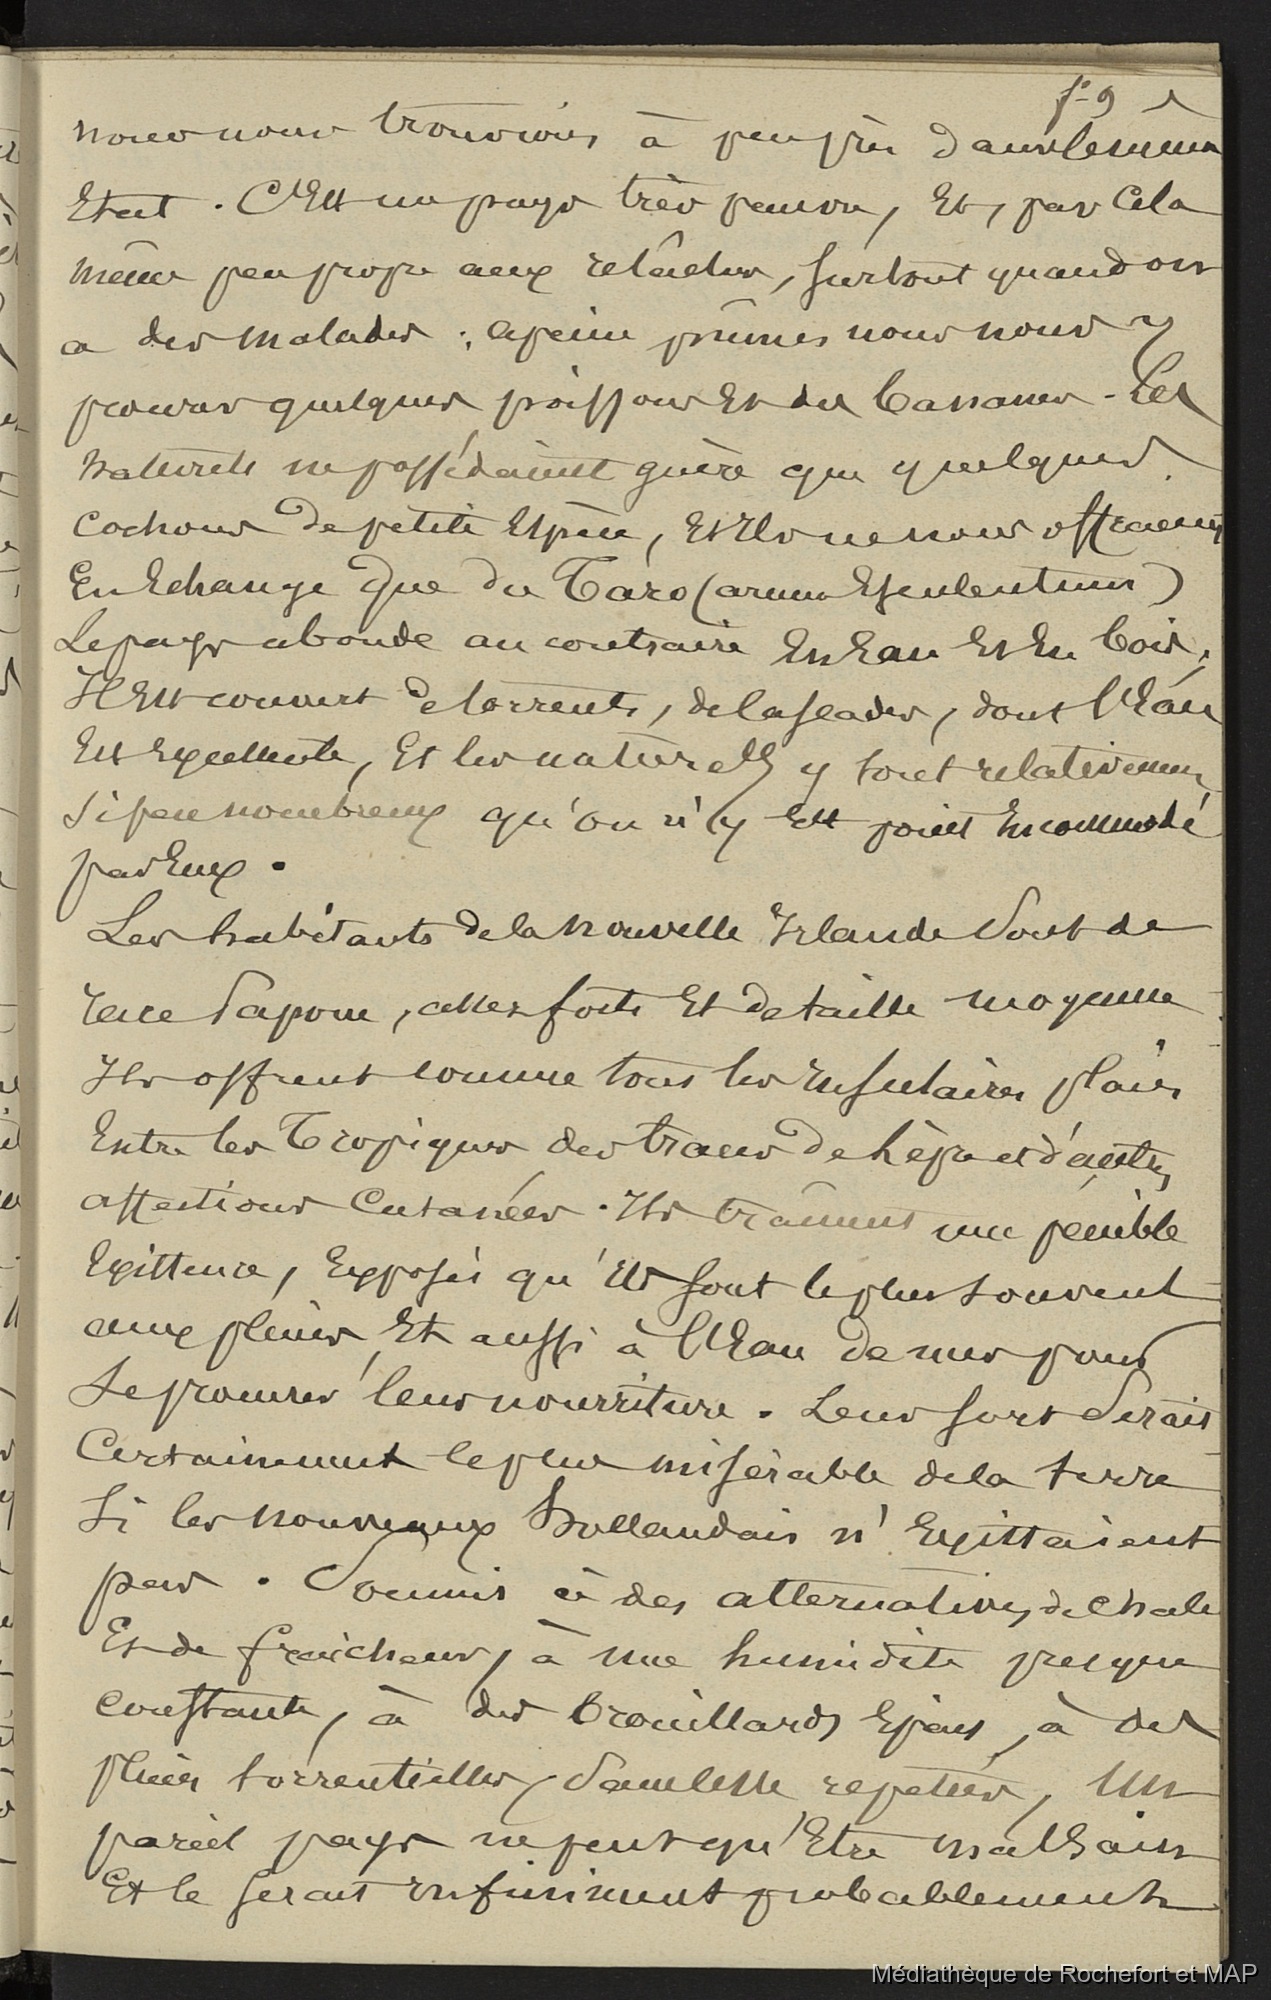 fo 9
nous nous trouvions à peu près dans le même
Etat . C'Est un pays très pauvre, Et, par Cela
même peu propre aux relâches, surtout quand on
a des malades ; apeine pûmes nous nous y
procurer quelques poissons Et des bananes . Les
naturels ne possédaient guère que quelques
cochons de petite Espèce, Et Ils ne nous offraient
En Echange que du Taro (arum Esculentum)
Le pays abonde au contraire En Eau Et En bois,
Il Est couvert de torrents, de cascades, dont l'Eau
Est Excellente, Et les naturels y sont relativement
si peu nombreux qu'on n'y Est point Incommodé
par Eux .
Les habitants de la nouvelle Irlande sont de
race Papoue, assez forts Et de taille moyenne
Ils offrent comme tous les Insulaires placés
Entre les Tropiques des traces de lèpre et d'autres
affections Cutanées . Ils traînent une pénible
Existence, Exposés qu'Ils sont le plus souvent
aux pluies Et aussi à l'Eau de mer pour
se procurer leur nourriture . Leur sort serait
Certainement le plus misérable de la terre
si les nouveaux hollandais n'Existaient
pas . Soumis à des alternatives de chaleur
Et de fraicheur, à une humidité presque
constante, à des brouillards Epais, à des
pluies torrentielles, sans cesse repetées, Un
pareil pays ne peut qu'Etre malsain
Et le serait Infiniment probablement
Médiathèque de Rochefort et MAP